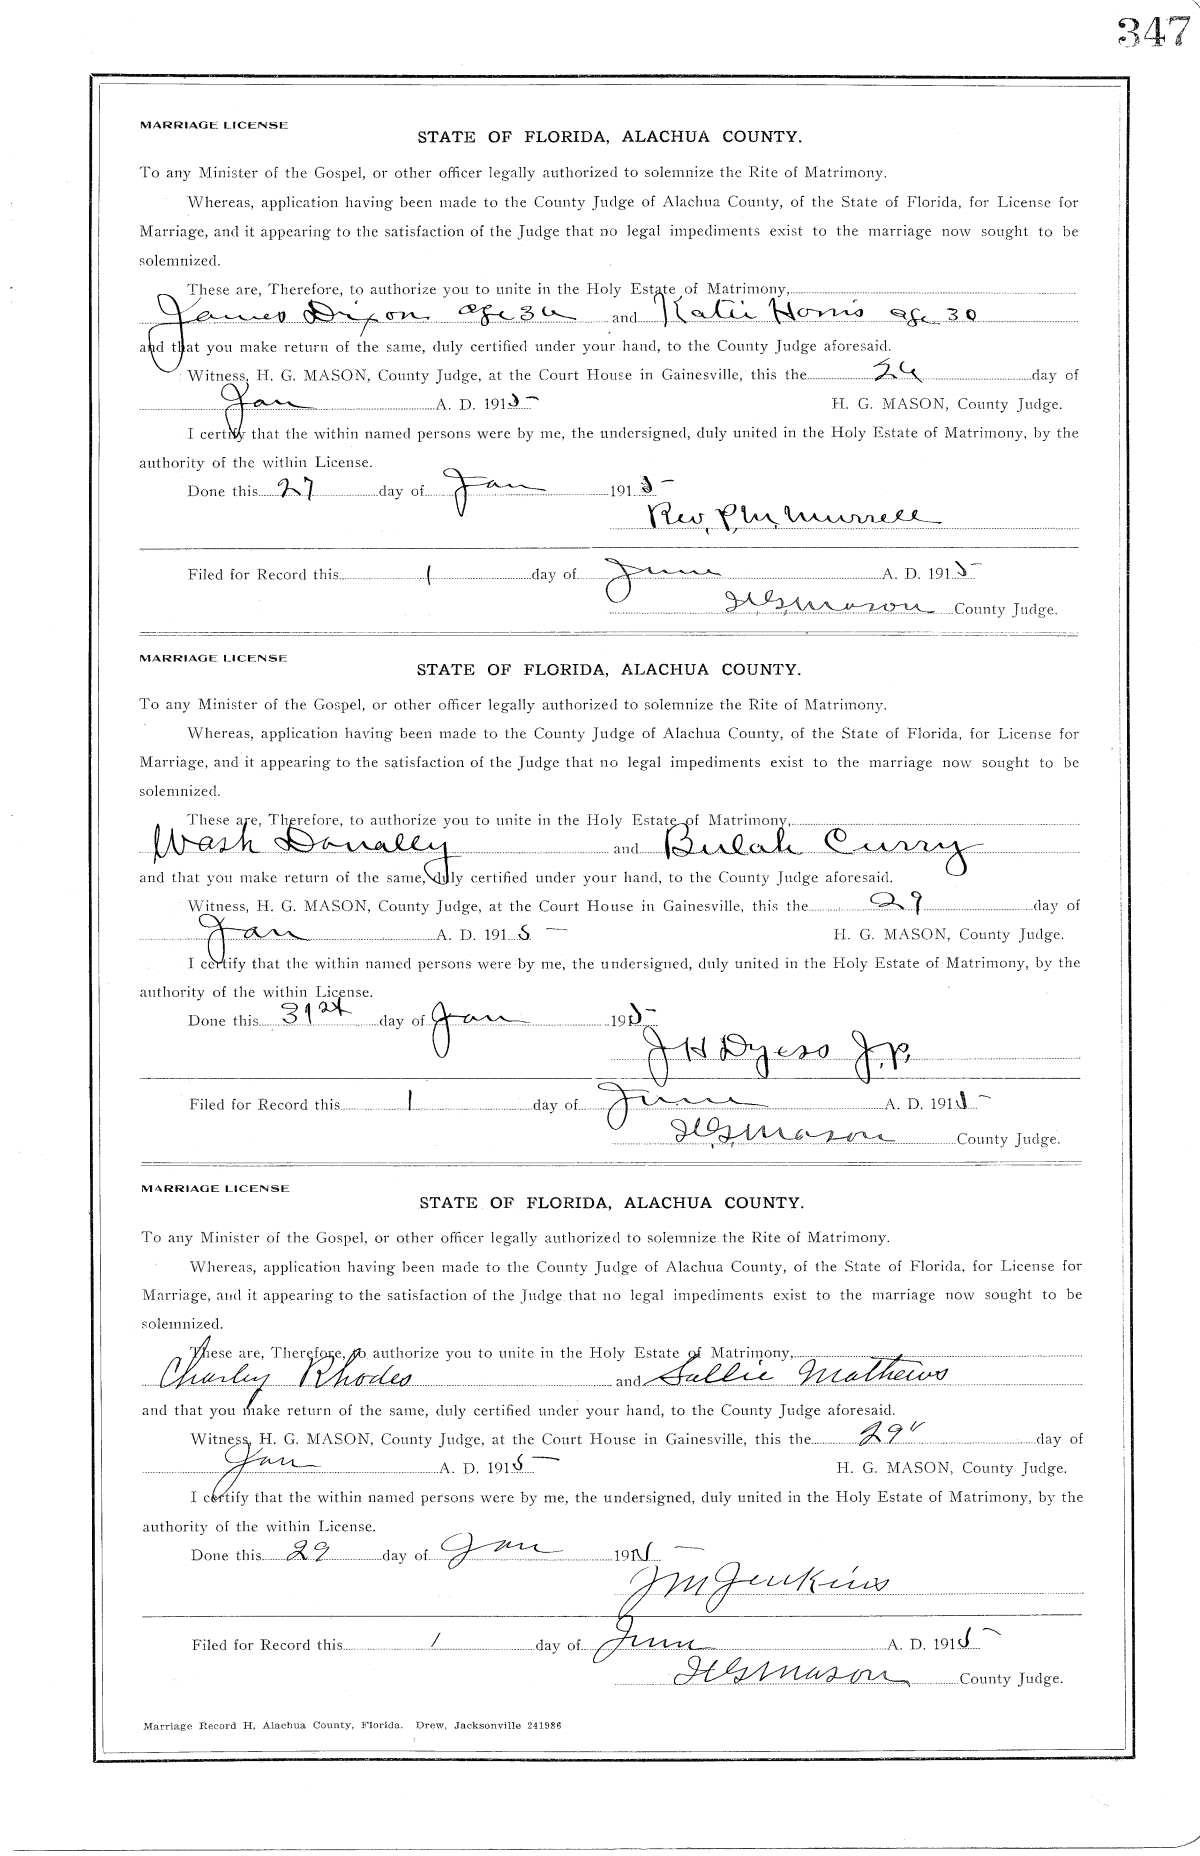 347
MARRIAGE LICENSE
STATE OF FLORIDA, ALACHUA COUNTY.
To any Minister of the Gospel, or other officer legally authorized to solemnize the Rite of Matrimony.
Whereas, application having been made to the County Judge of Alachua County, of the State of Florida, for License for
Marriage, and it appearing to the satisfaction of the Judge that no legal impediments exist to the marriage now sought to be
solemnized.
These are, Therefore, to authorize you to unite in the Holy Estate of Matrimony,
James Dixon age and Katie Harris age 30
and that you make return of the same, duly certified under your hand, to the County Judge aforesaid.
Witness, H. G. MASON, County Judge, at the Court House in Gainesville, this the day of
Jan A. D. 1915 H. G. MASON, County Judge.
I certify that the within named persons were by me, the undersigned, duly united in the Holy Estate of Matrimony, by the
authority of the within License.
Done this 27 day of Jan 1915
Rev. P. M. Murrell
Filed for Record this 1 day of June A. D. 1915
H. G. Mason County Judge.
MARRIAGE LICENSE
STATE OF FLORIDA, ALACHUA COUNTY.
To any Minister of the Gospel, or other officer legally authorized to solemnize the Rite of Matrimony.
Whereas, application having been made to the County Judge of Alachua County, of the State of Florida, for License for
Marriage, and it appearing to the satisfaction of the Judge that no legal impediments exist to the marriage now sought to be
solemnized.
These are, Therefore, to authorize you to unite in the Holy Estate of Matrimony,
Wash Donally and Bulah Curry
and that you make return of the same, duly certified under your hand, to the County Judge aforesaid.
Witness, H. G. MASON, County Judge, at the Court House in Gainesville, this the 29 day of
Jan A. D. 1915 H. G. MASON, County Judge.
I certify that the within named persons were by me, the undersigned, duly united in the Holy Estate of Matrimony, by the
authority of the within License.
Done this 31st day of Jan 1915
J H Dyess J.P.
Filed for Record this 1 day of June A. D. 1915
H. G. Mason County Judge.
MARRIAGE LICENSE
STATE OF FLORIDA, ALACHUA COUNTY.
To any Minister of the Gospel, or other officer legally authorized to solemnize the Rite of Matrimony.
Whereas, application having been made to the County Judge of Alachua County, of the State of Florida, for License for
Marriage, and it appearing to the satisfaction of the Judge that no legal impediments exist to the marriage now sought to be
solemnized.
These are, Therefore, to authorize you to unite in the Holy Estate of Matrimony,
Charley Rhodes and Sallie Mathews
and that you make return of the same, duly certified under your hand, to the County Judge aforesaid.
Witness, H. G. MASON, County Judge, at the Court House in Gainesville, this the 29" day of
Jan A. D. 1915 H. G. MASON, County Judge.
I certify that the within named persons were by me, the undersigned, duly united in the Holy Estate of Matrimony, by the
authority of the within License.
Done this 29 day of Jan 1915
J M Jenkins
Filed for Record this 1 day of June A. D. 1915
H G Mason County Judge.
Marriage Record H, Alachua County, Florida. Drew, Jacksonville 241986